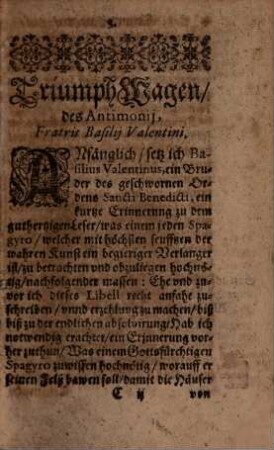 Triumph Wagen/
des Antimonij,
Fratris Basilij Valentini,
ANfänglich/ setz ich Ba-
silius Valentinus, ein Bru-
der des geschwornen Or-
dens Sancti Benedicti, ein
kurtze Erinnerung zu dem
guthertzigen Leser/ was einem jeden Spa-
gyro/ welcher mit höchstem seufftzen der
wahren Kunst ein begieriger Verlanger
ist/ zu betrachten und obzuliegen hochnö-
tig/ nachfolgender massen: Ehe und zu-
vor ich dieses Libell recht anfahe zu-
schreiben/ unnd erzehlung zu machen/ biß
biß zu der endlichen absolvirung/ Hab ich
notwendig erachtet/ ein Erinnerung vor-
her zuthun/ Was einem Gottsfürchtigen
Spagyro zuwissen hochnötig/ worauff er
seinen Felß bawen soll/ damit die Häuser
C ij von